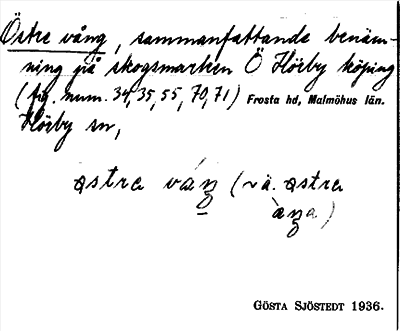 Östre vång, sammanfattande benäm-
ning på skogsmarken Ö Hörby köping
(fig. num. 34, 35, 55, 70, 71) Frosta hd, Malmöhus län.
Hörby sn,
astra váŋ (vä. astra
àŋa)
GÖSTA SJÖSTEDT 1936.